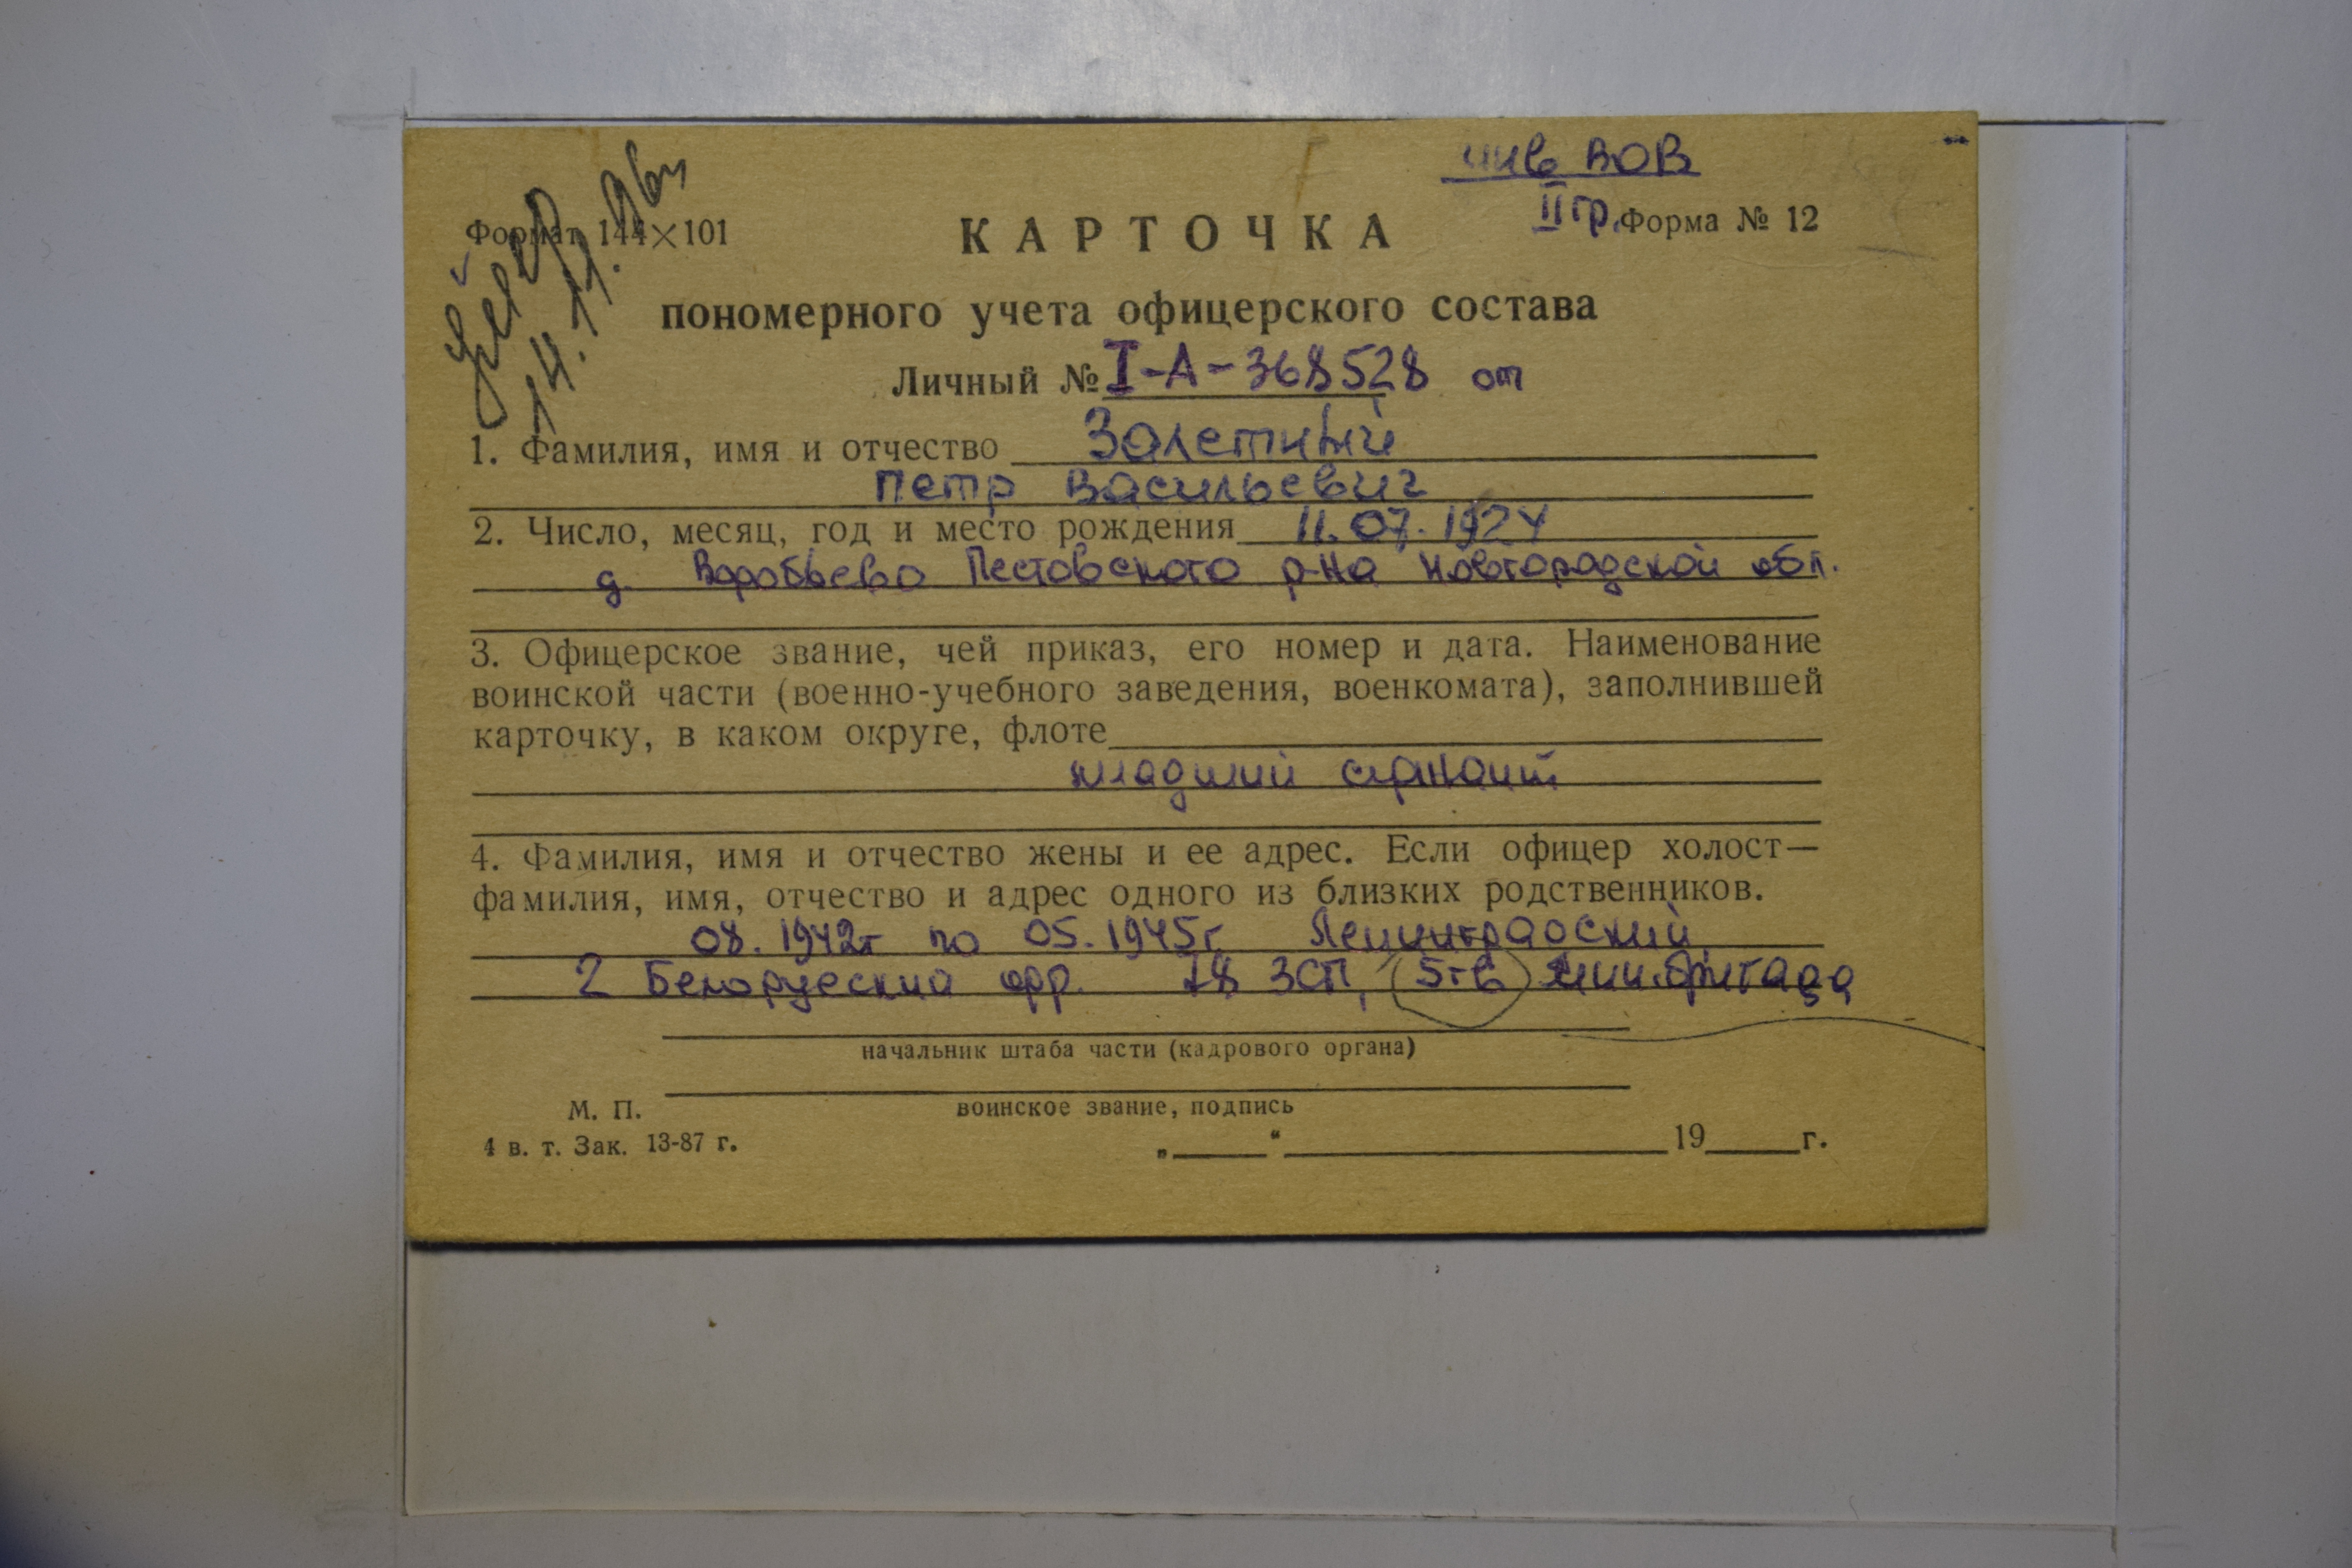 инв ВОВ
Формат 144×101
КАРТОЧКА
II гр. Форма № 12
14.11.96
пономерного учета офицерского состава
Личный № I-А-368528 от
1. Фамилия, имя и отчество Залетный
Петр Васильевич
2. Число, месяц, год и место рождения 11.07.1924
д. Воробьево Пестовского р-на Новгородской обл.
3. Офицерское звание, чей приказ, его номер и дата. Наименование
воинской части (военно-учебного заведения, военкомата), заполнившей
карточку, в каком округе, флоте
младший сержант
4. Фамилия, имя и отчество жены и ее адрес. Если офицер холост—
фамилия, имя, отчество и адрес одного из близких родственников.
08.1942г по 05.1945г. Ленинградский,
2 Белоруский фр. 18 ЗСП, 5 гв мин.бригада
начальник штаба части (кадрового органа)
М. П.
воинское звание, подпись
4 в. т. Зак. 13-87 г.
„ “ 19 г.